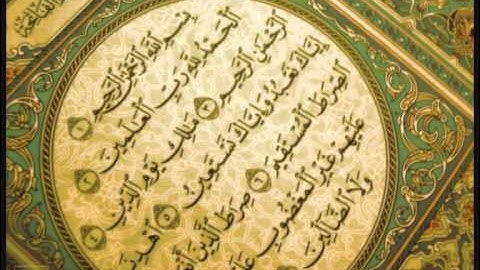 بِسْمِ اللَّهِ الرَّحْمَٰنِ الرَّحِيمِ ۝١
الْحَمْدُ لِلَّهِ رَبِّ الْعَٰلَمِينَ ۝٢
الرَّحْمَٰنِ الرَّحِيمِ ۝٣ مَٰلِكِ يَوْمِ الدِّينِ ۝٤
إِيَّاكَ نَعْبُدُ وَإِيَّاكَ نَسْتَعِينُ ۝٥ اهْدِنَا
الصِّرَٰطَ الْمُسْتَقِيمَ ۝٦ صِرَٰطَ الَّذِينَ
عَلَيْهِمْ غَيْرِ الْمَغْضُوبِ
وَلَا الضَّالِّينَ